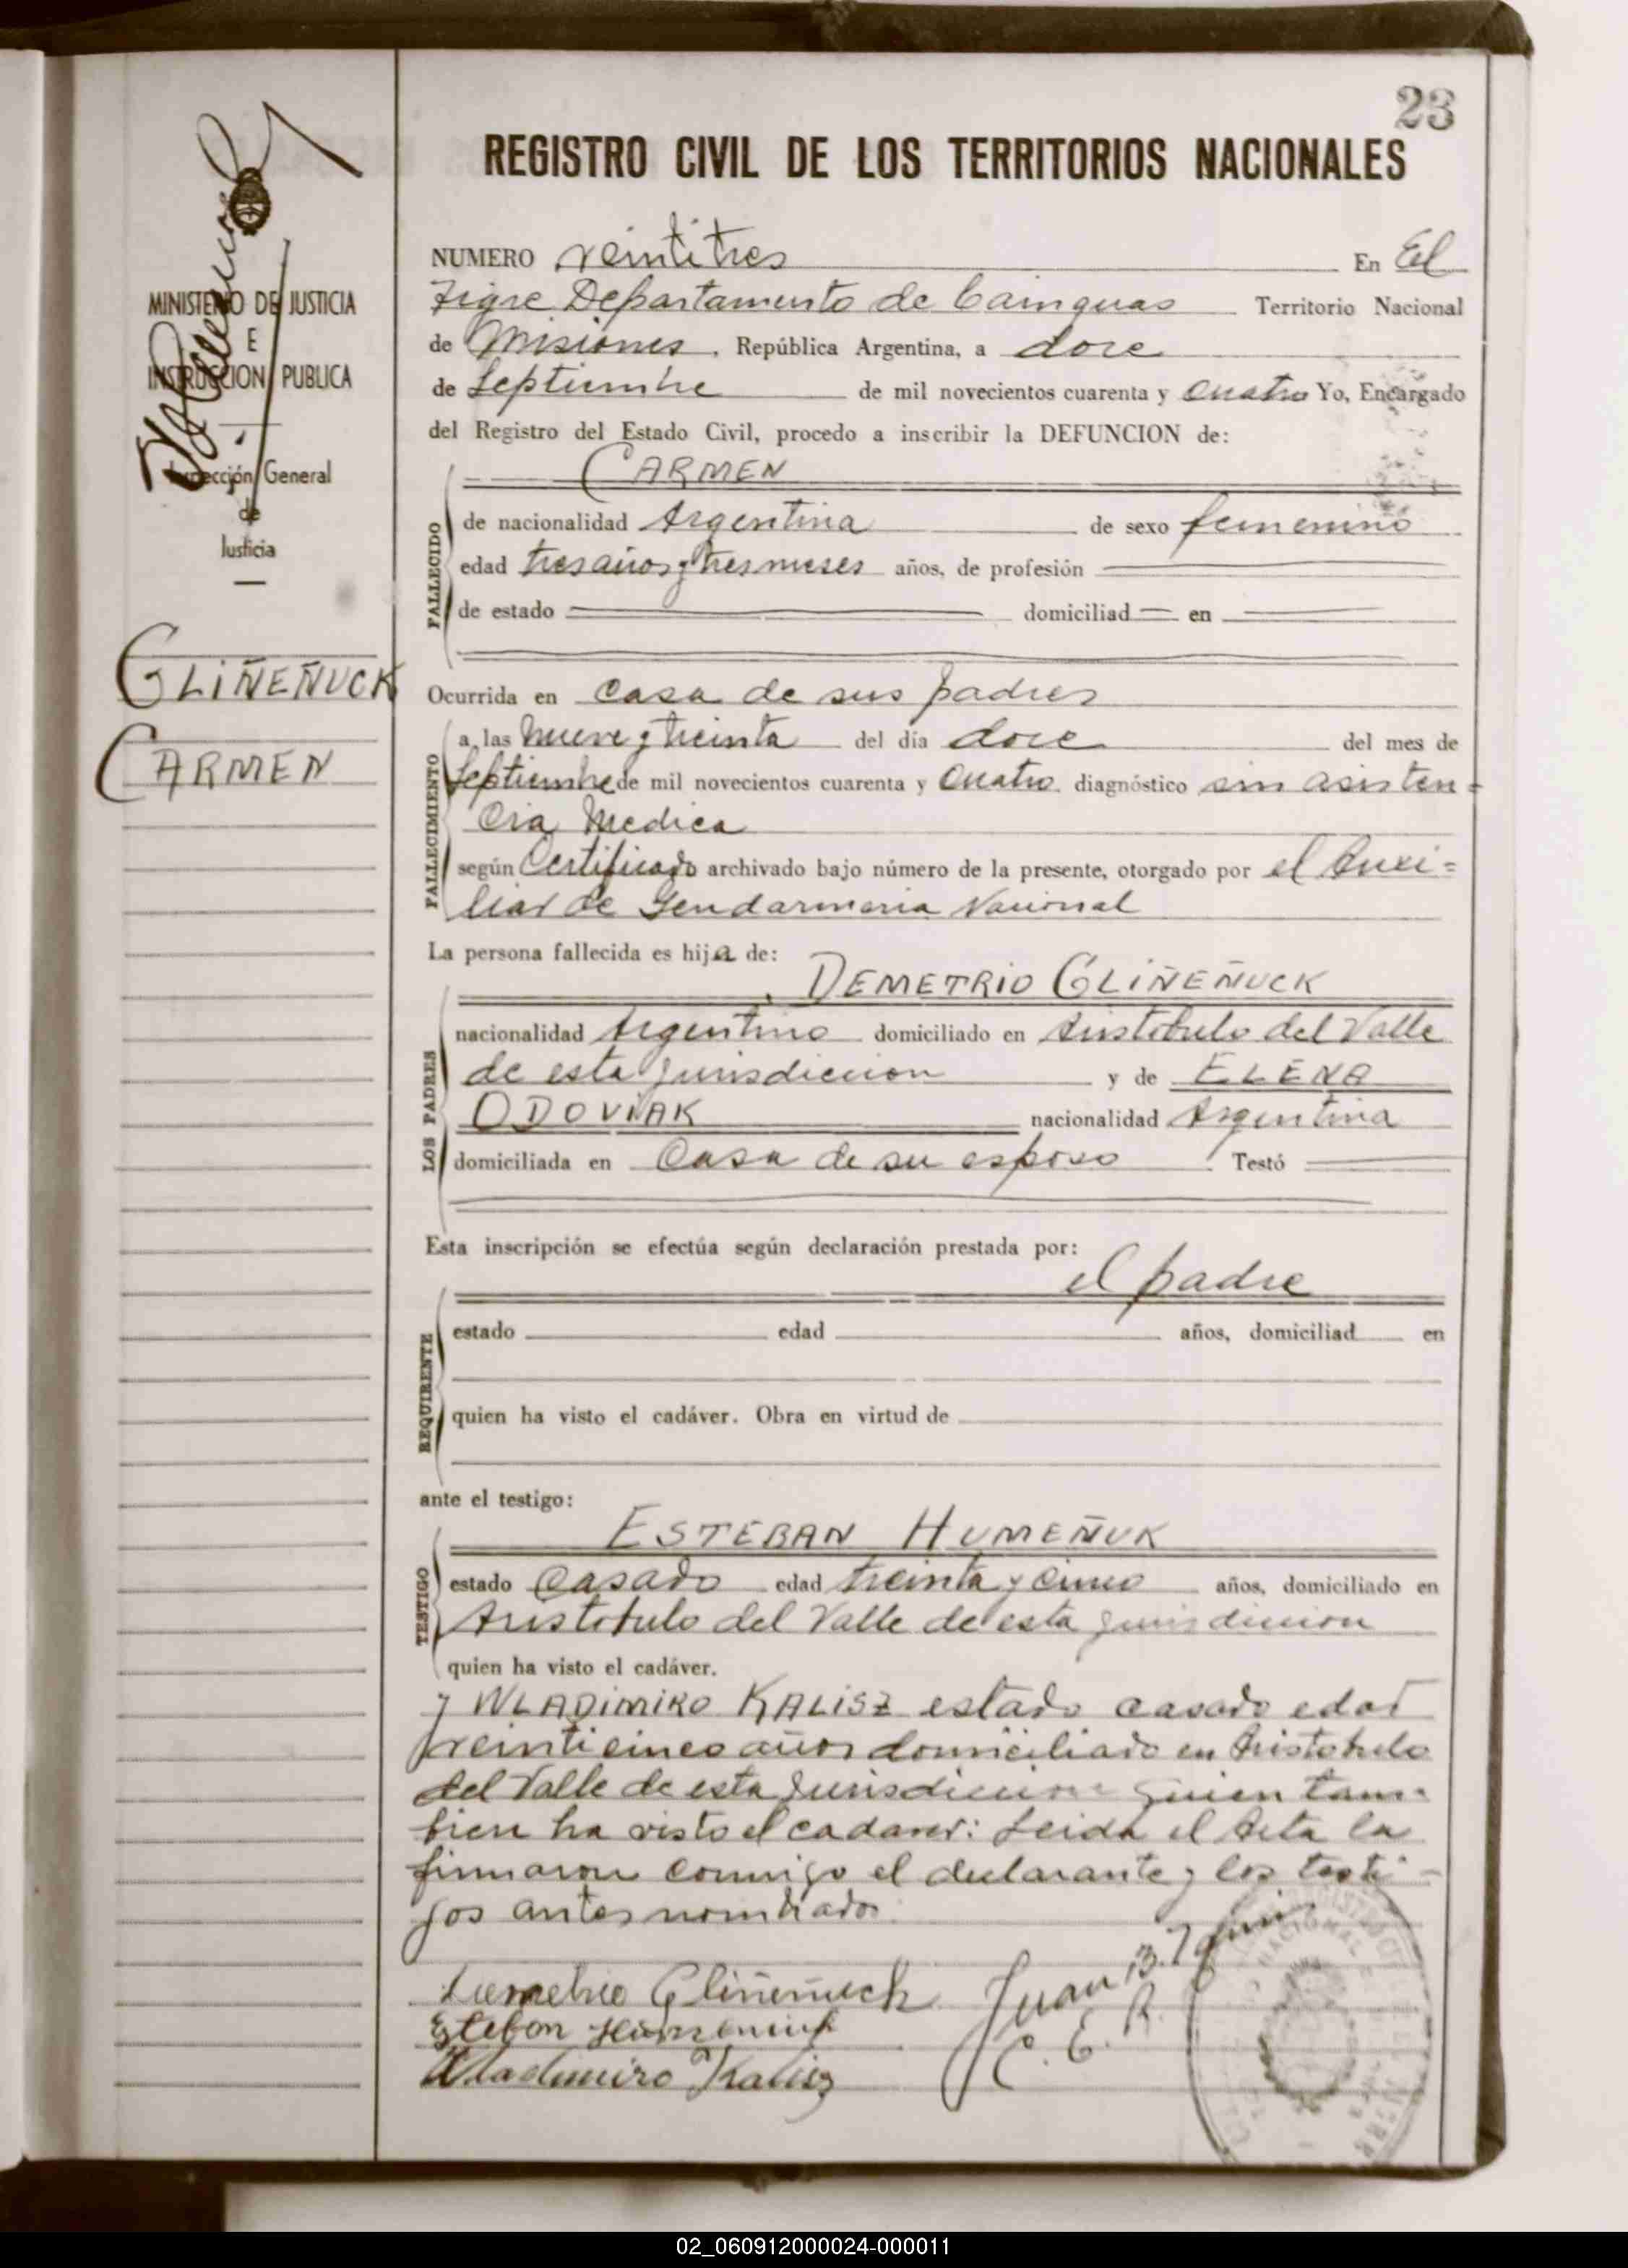 23
REGISTRO CIVIL DE LOS TERRITORIOS NACIONALES
MINISTERIO DE JUSTICIA
E
INSTRUCCION PUBLICA
Inspección General
de
Justicia
GLIÑEÑUCK
CARMEN
NUMERO veintitres En El
Tigre Departamento de Cainguas Territorio Nacional
de Misiones, República Argentina, a doce
de Septiembre de mil novecientos cuarenta y cuatro Yo, Encargado
del Registro del Estado Civil, procedo a inscribir la DEFUNCION de:
CARMEN
FALLECIDO
de nacionalidad Argentina de sexo femenino
edad tres años y tres meses años, de profesión
de estado domiciliad en
Ocurrida en casa de sus padres
FALLECIMIENTO
a las nueve y treinta del día doce del mes de
Septiembre de mil novecientos cuarenta y cuatro diagnóstico sin asisten=
cia Medica
según Certificado archivado bajo número de la presente, otorgado por el Auxi=
liar de Gendarmeria Nacional
La persona fallecida es hija de:
DEMETRIO GLIÑEÑUCK
LOS PADRES
nacionalidad Argentino domiciliado en Aristobulo del Valle
de esta jurisdiccion y de ELENA
ODOVIAK nacionalidad Argentina
domiciliada en Casa de su esposo Testó
Esta inscripción se efectúa según declaración prestada por:
el padre
REQUIRENTE
estado edad años, domiciliad en
quien ha visto el cadáver. Obra en virtud de
ante el testigo:
ESTEBAN HUMEÑUK
TESTIGO
estado Casado edad treinta y cinco años, domiciliado en
Aristobulo del Valle de esta jurisdiccion
quien ha visto el cadáver.
y WLADIMIRO KALISZ estado casado edad
veinticinco años domiciliado en Aristobulo
del Valle de esta Jurisdiccion quien tam-
bien ha visto el cadaver: Leida el Acta la
firmaron conmigo el declarante y los testi-
gos antes nombrados
Demetrio Gliñeñuck
Esteban
Wladimiro Kalisz
Juan B.
C. E. R.
02_060912000024-000011